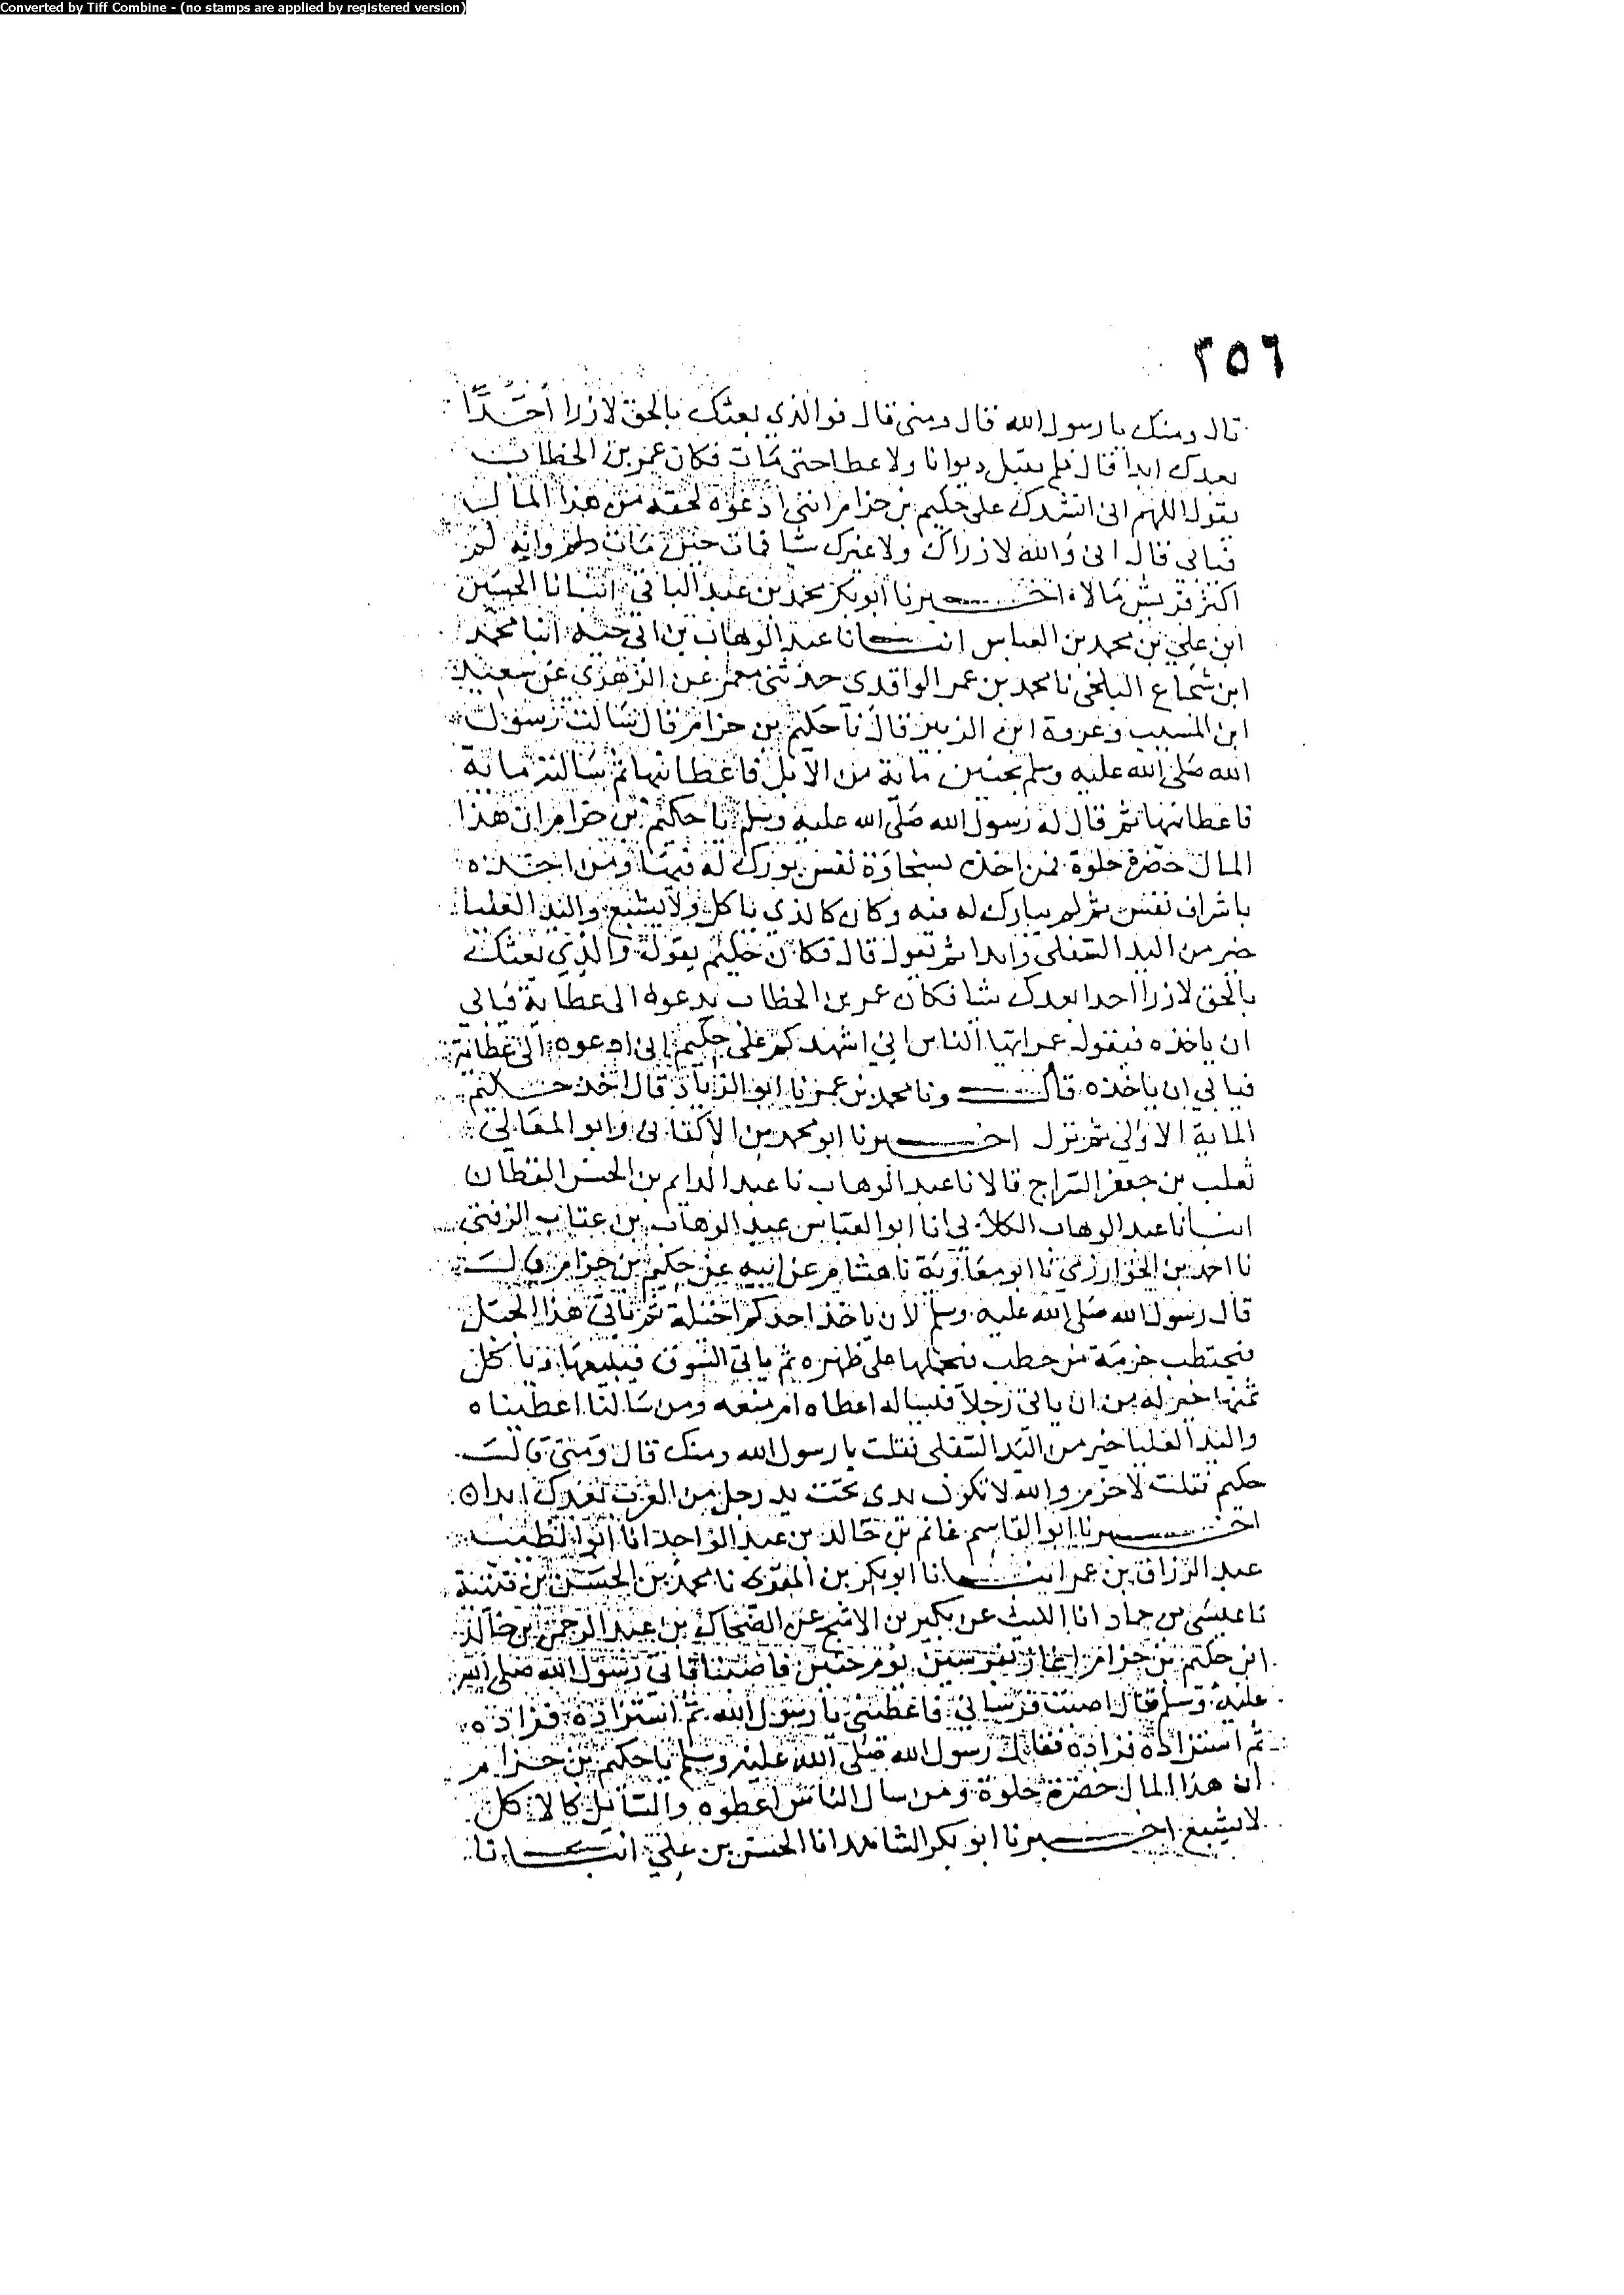 Converted by Tiff Combine - (no stamps are applied by registered version)
٢٥٦
قال ومنك يا رسول الله قال ومني قال فوالذي بعثك بالحق لا ازرا احدا
بعدك ابدا قال فلم يقبل ديوانا ولا عطا حتى مات فكان عمر بن الخطاب
يقول اللهم اني اشهدك على حكيم بن حزام انني ادعوه لحقه من هذا المال
فيابى قال اني والله لا ازراك ولا غيرك شيا فمات حين مات وانه لمن
اكثر قريش مالا اخبرنا ابو بكر محمد بن عبد الباقي انبانا الحسين
ابن علي بن محمد بن العباس انبانا عبد الوهاب بن ابي حيه انبا محمد
ابن شجاع البلخي نا محمد بن عمر الواقدي حدثني معمر عن الزهري عن سعيد
ابن المسيب وعروة ابن الزبير قال نا حكيم بن حزام قال سالت رسول
الله صلى الله عليه وسلم بحنين ماية من الابل فاعطانيها ثم سالته ماية
فاعطانيها ثم قال له رسول الله صلى الله عليه وسلم يا حكيم بن حزام ان هذا
المال خضرة حلوة فمن اخذه بسخاوة نفس بورك له فيها ومن اخذه
باشراف نفس ثم لم يبارك له فيه وكان كالذي ياكل ولا يشبع واليد العليا
خير من اليد السفلى وابدا ثم تعول قال فكان حكيم يقول والذي بعثك
بالحق لا ازرا احدا بعدك شيا فكان عمر بن الخطاب يدعوه الى عطاية فيابي
ان ياخذه فيقول عمر ايها الناس اني اشهدكم على حكيم اني ادعوه الى عطاية
فيابي ان ياخذه قال ونا محمد بن عمر نا ابو الزناد قال اخذ حكيم
الماية الاولى ثم ترك اخبرنا ابو محمد بن الاكفاني وابو المعالي
ثعلب بن جعفر السراج قالا نا عبد الوهاب نا عبد الدايم بن الحسن القطان
انبانا عبد الوهاب الكلابي انا ابو العباس عبد الوهاب بن عتاب الزفتي
نا احمد بن الخوارزمي نا ابو معاوية نا هشام عن ابيه عن حكيم بن حزام قال
قال رسول الله صلى الله عليه وسلم لان ياخذ احدكم احبله ثم ياتي هذا الجبل
فيحتطب حزمة من حطب فيحملها على ظهره ثم ياتي السوق فيبيعها فياكل
ثمنها خير له من ان ياتي رجلا فيساله اعطاه ام منعه ومن سالنا اعطيناه
واليد العليا خير من اليد السفلى فقلت يا رسول الله ومنك قال ومني قال
حكيم فقلت لا جرم والله لا تكون يدي تحت يد رجل من العرب بعدك ابدا
اخبرنا ابو القاسم غانم بن خالد بن عبد الواحد انا ابو الطيب
عبد الرزاق بن عمر انبانا ابو بكر بن المقرى نا محمد بن الحسن بن قتيبة
نا عيسى بن حماد انا الليث عن بكير بن الاشج عن الضحاك بن عبد الرحمن بن خالد
ابن حكيم بن حزام اغار بفرسين يوم حنين فاصيبتا فاتى رسول الله صلى الله
عليه وسلم فقال اصيبت فرساي فاعطني يا رسول الله ثم استزاده فزاده
ثم استزاده فزاده فقال رسول الله صلى الله عليه وسلم يا حكيم بن حزام
ان هذا المال خضرة حلوة ومن سال الناس اعطوه والسائل كالاكل
لا يشبع اخبرنا ابو بكر الشاهد انا الحسن بن علي انبانا